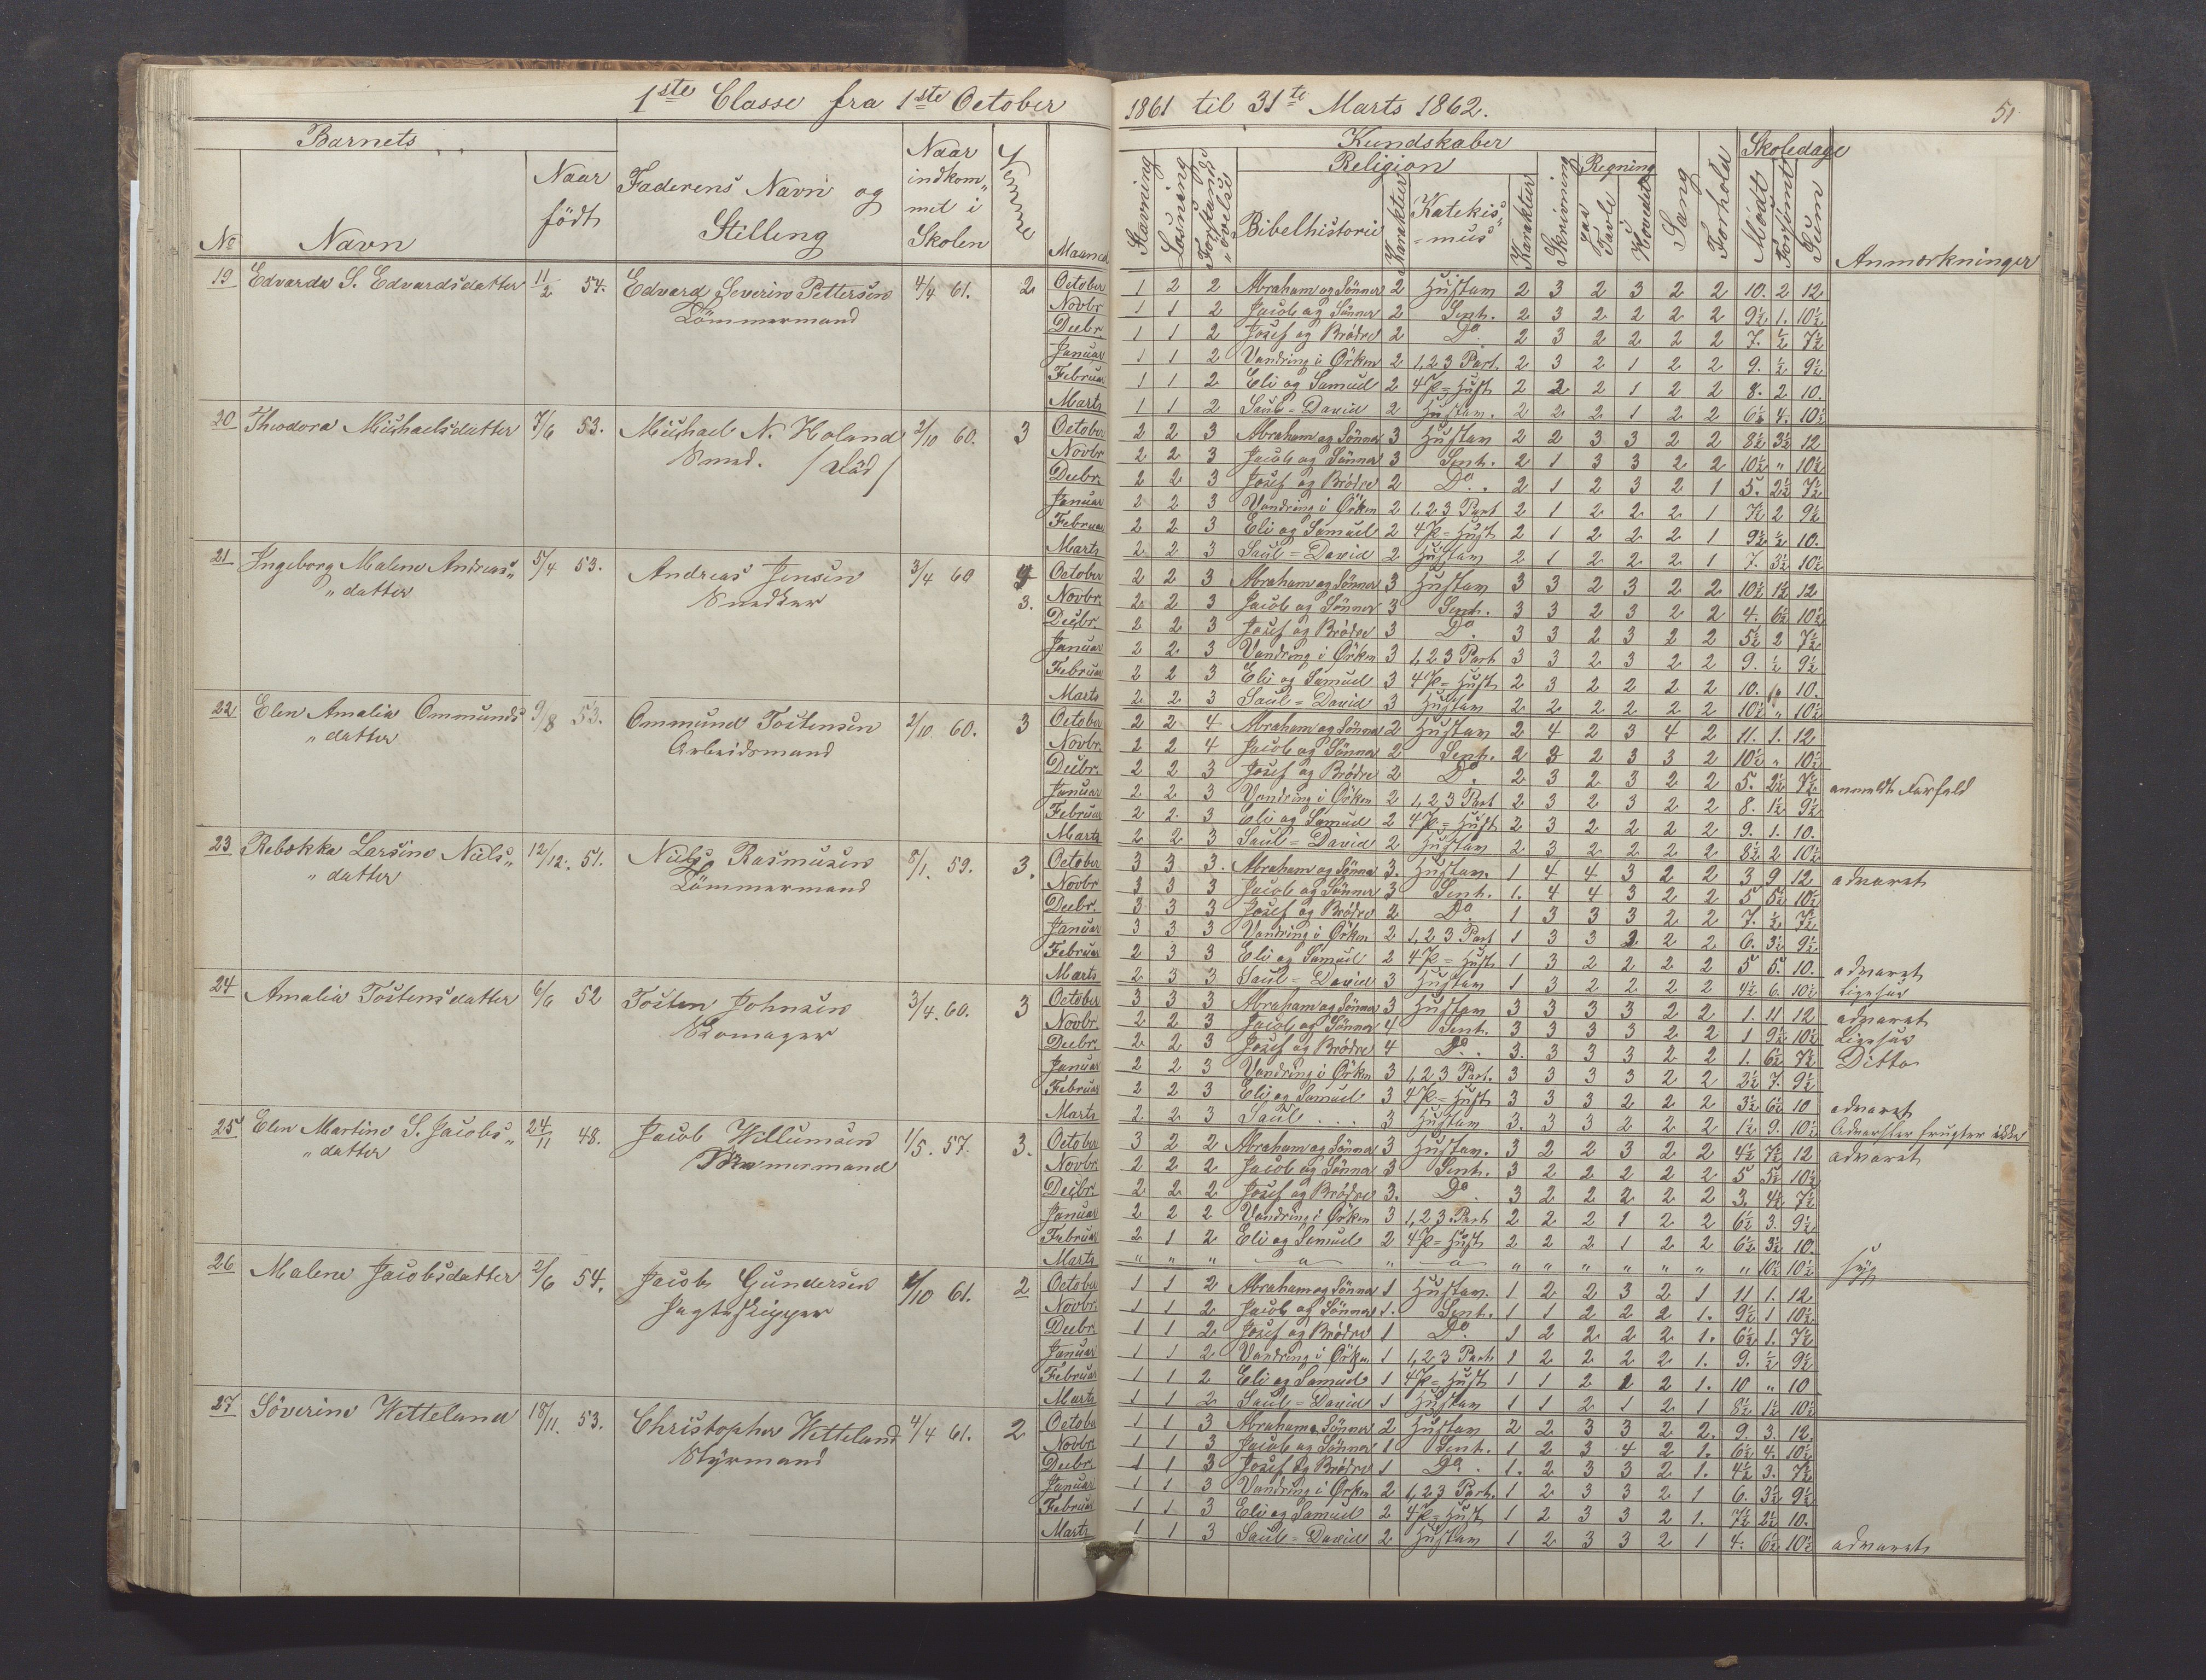 1ste Classe fra 1ste October 1861 til 31te Marts 1862.
51.
Barnets
No
Navn
Naar födt
Faderens Navn og Stilling
Naar indkommet i Skolen
Evne
Maaned
Kundskaber
Stavning
Læsning
Forstandsövelse
Religion
Bibelhistorie
Karakter
Katekismus
Karakter
Skrivning
Regning
paa Tavle
Hovedet
Sang
Forhold
Skoledage
Mödt
Forsömt
Sum
Anmærkninger
19 Edvarda S. Edvardsdatter 11/2 54. Edvard Severin Pettersen 4/4 61. 2 October 1 2 2 Abraham og Sönner 2 Hustavn 2 3 2 3 2 2 10. 2 12
Tömmermand Novbr 1 1 2 Jacob og Sönner 2 Sent. 2 3 2 2 2 2 9½ 1. 10½
Decbr 1 1 2 Josef og Brödre 2 Do. 2 3 2 2 2 2 7. ½ 7½
Januar 1 1 2 Vandring i Örken 2 1,2,3 Part. 2 3 2 1 2 2 9. ½ 9½
Februar 1 1 2 Eli og Samuel 2 4 P = Hust 2 2 2 1 2 2 8. 2 10.
Marts 1 1 2 Saul = David 2 Hustav. 2 2 2 1 2 2 6½ 4. 10½
20 Theodora Michaelsdatter 7/6 53. Michael N. Holand 2/10 60. 3 October 2 2 3 Abraham og Sönner 3 Hustavn 2 2 3 3 2 2 8½ 3½ 12
Smed. /död/ Novbr 2 2 3 Jacob og Sönner 3 Sent. 2 1 3 3 2 2 10½ " 10½
Decbr. 2 2 3 Josef og Brödre 2 Do. 2 1 2 3 2 1 5. 2½ 7½
Januar 2 2 3 Vandring i Örken 2 1,2,3 Part 2 1 2 2 2 1 7½ 2 9½
Februar 2 2 3 Eli og Samuel 2 4 P = Hust 2 1 2 2 2 1 9½ ½ 10.
Marts 2 2 3 Saul = David 2 Hustav 2 1 2 2 2 1 7. 3½ 10½
21 Ingeborg Malene Andreas" 5/4 53. Andreas Jensen 3/4 60 October 2 2 3 Abraham og Sönner 3 Hustavn 3 3 2 3 2 2 10½ 1½ 12
" datter Snedker 3. Novbr. 2 2 3 Jacob og Sönner 3 Sent. 3 3 2 3 2 2 4. 6½ 10½
Decbr. 2 2 3 Josef og Brödre 3 Do. 3 3 2 3 2 2 5½ 2 7½
Januar 2 2 3 Vandring i Örken 3 1,2,3 Part 3 3 2 3 2 2 9. ½ 9½
Februar 2 2 3 Eli og Samuel 3 4 P = Hust 2 3 2 2 2 2 10. " 10.
Marts 2 2 3 Saul = David 3 Hustav 2 2 2 2 2 2 10½ " 10½
22 Elen Amalia Ommunds 9/8 53. Ommund Tostensen 2/10 60. 3 October 2 2 4 Abraham og Sönner 2 Hustav 2 4 2 3 4 2 11. 1. 12
" datter Arbeidsmand Novbr. 2 2 4 Jacob og Sönner 2 Sent. 2 3 2 3 3 2 10½ " 10½
Decbr. 2 2 3 Josef og Brödre 2 Do. 2 3 2 3 2 2 5. 2½ 7½ anmeldt Forfald
Januar 2 2 3 Vandring i Örken 2 1,2,3 Part 2 3 2 3 2 2 8. 1½ 9½
Februar 2 2 3 Eli og Samuel 2 4 P = Hust 2 3 2 2 2 2 9. 1. 10.
Marts 2 2 3 Saul = David 2 Hustav 2 3 2 2 2 2 8½ 2 10½
23 Rebekka Larsine Niels" 12/12. 51. Niels Rasmusen 8/1. 59. 3. October 3 3 3. Abraham og Sönner 3. Hustav. 1 4 4 3 2 2 3 9 12 advaret
" datter Tömmermand Novbr 3 3 3 Jacob og Sönner 3 Sent. 1. 4 4 3 2 2 5 5½ 10½
Decbr. 3 3 3 Josef og Brödre 2 Do 1 3 3 3 2 2 7. ½ 7½
Januar 3 3 3 Vandring i Örken 2 1,2,3 Part 1 3 3 2 2 2 6. 3½ 9½
Februar 2 3 3 Eli og Samuel 2 4 P = Hust 1 3 2 2 2 2 5 5. 10. advaret
Marts 2 3 3 Saul = David 3 Hustav 1 3 2 2 2 2 4½ 6. 10½ Ligesaa
24 Amalia Tostensdatter 6/6 52 Tosten Johnsen 3/4. 60. 3 October 3 3 3 Abraham og Sönner 3 Hustav 3 3 3 3 2 2 1. 11 12 advaret
Skomager Novbr. 2 2 3 Jacob og Sönner 4 Sent. 3 3 3 3 2 2 1 9½ 10½ Ligesaa
Decbr. 2 2 3 Josef og Brödre 4 Do. 3. 3 3 3 2 2 1. 6½ 7½ Ditto
Januar 2 2 3 Vandring i Örken 3 1,2,3 Part. 3 3 3 3 2 2 2½ 7. 9½
Februar 2 2 3 Eli og Samuel 3 4 P = Hust 3 3 3 2 2 2 3½ 6½ 10 advaret
Marts 2 2 3 Saul . . . 3 Hustav 3. 3 3 2 2 2 1½ 9. 10½ Advarsler frugter ikke
25 Elen Martine S. Jacobs" 24/11 48. Jacob Willumsen 1/5. 57. 3. October 3 2 2 Abraham og Sönner 3 Hustav. 3 2 2 3 2 2 4½ 7½ 12 advaret
" datter Tömmermand Novbr. 2 2 2 Jacob og Sönner 3 Sent. 3 2 2 2 2 2 5 5½ 10½
Decbr. 2 2 2 Josef og Brödre 3. Do. 3 2 2 2 2 2 3. 4½ 7½
Januar 2 2 2 Vandring i Örken 3 1,2,3 Part 2 2 2 1 2 2 6½ 3. 9½
Februar 2 1 2 Eli og Samuel 2 4 P = Hust 2 2 2 1 2 2 6½ 3½ 10.
Marts " " " " " " " " " " " " " 10½ 10½ syg
26 Malene Jacobsdatter 2/6 54. Jacob Gundersen /10 61. 2 October 1 1 2 Abraham og Sönner 1 Hustav. 1 2 2 3 2 1 11 1. 12
Jagtskipper Novbr. 1 1 2 Jacob og Sönner 1. Sent. 1 1 2 2 2 1. 9½ 1 10½
Decbr. 1 1 2 Josef og Brödre 1 Do. 1 2 2 2 2 1. 6½ 1. 7½
Januar 1 1 2 Vandring i Örken 1 1,2,3 Part 1 2 2 2 2 1. 9. ½ 9½
Februar 1 1 2 Eli og Samuel 1 4 P = Hust 1 1 2 2 1. 10 " 10
Marts 1 1 2 Saul = David 1 Hustav 1 1 2 1 2 1 8½ 1½ 10½
27 Söverine Wetteland 18/11. 53. Christopher Wetteland 4/4 61. 2 October 1 1 3 Abraham o. Sönner 2 Hustav 2 2 3 3 2 2. 9. 3. 12.
Styrmand Novbr. 1 1 3 Jacob og Sönner 1 Sent. 1 2 3 4 2 1. 6½ 4. 10½
Decbr. 1 1 3 Josef og Brödre 1 Do. 1. 2 3 3 2 1. 4½ 3. 7½
Januar 1 1 3 Vandring i Örken 2 1,2,3 Part. 1 2 3 3 2 1 6. 3½ 9½
Februar 1 1 3 Eli og Samuel 2 4 P = Hust 1 2 3 3 2 1. 7½ 2½ 10.
Marts 1 1 3 Saul = David 2 Hustav 1 2 3 3 2 1 4. 6½ 10½ advaret